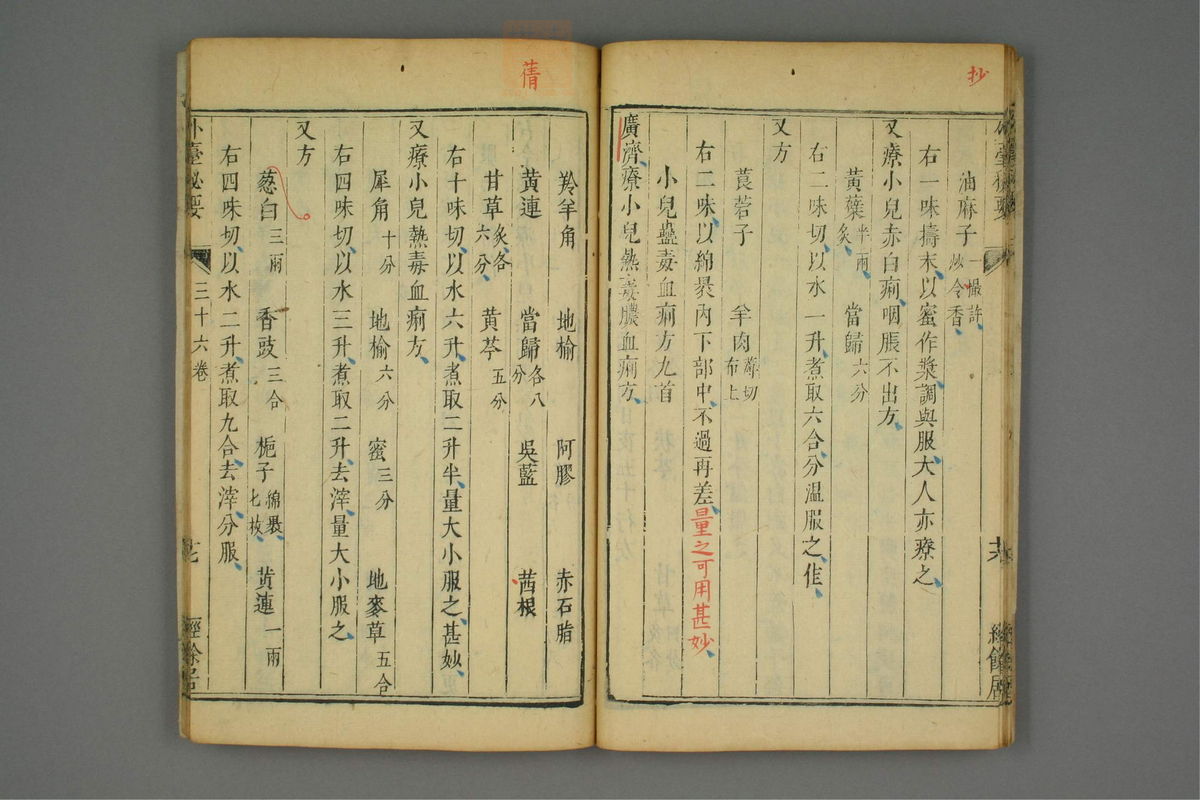 抄
油麻子一撮許炒令香
右一味擣末以蜜作漿調與服大人亦療之
又療小兒赤白痢咽脹不出方
黃蘗半兩炙 當歸六分
右二味切以水一升煮取六合分溫服之佳
又方
莨菪子 羊肉薄切布上
右二味以綿裹內下部中不過再差量之可用甚妙
小兒蠱毒血痢方九首
廣濟療小兒熱毒膿血痢方
蒨
羚羊角 地榆 阿膠 赤石脂
黃連 當歸各八分 吳藍 茜根
甘草炙各六分 黃芩五分
右十味切以水六升煮取二升半量大小服之甚妙
又療小兒熱毒血痢方
犀角十分 地榆六分 蜜三分 地麥草五合
右四味切以水三升煮取二升去滓量大小服之
又方
葱白三兩 香豉三合 梔子綿裹七枚 黃連一兩
右四味切以水二升煮取九合去滓分服
外臺祕要 三十六卷 經餘居